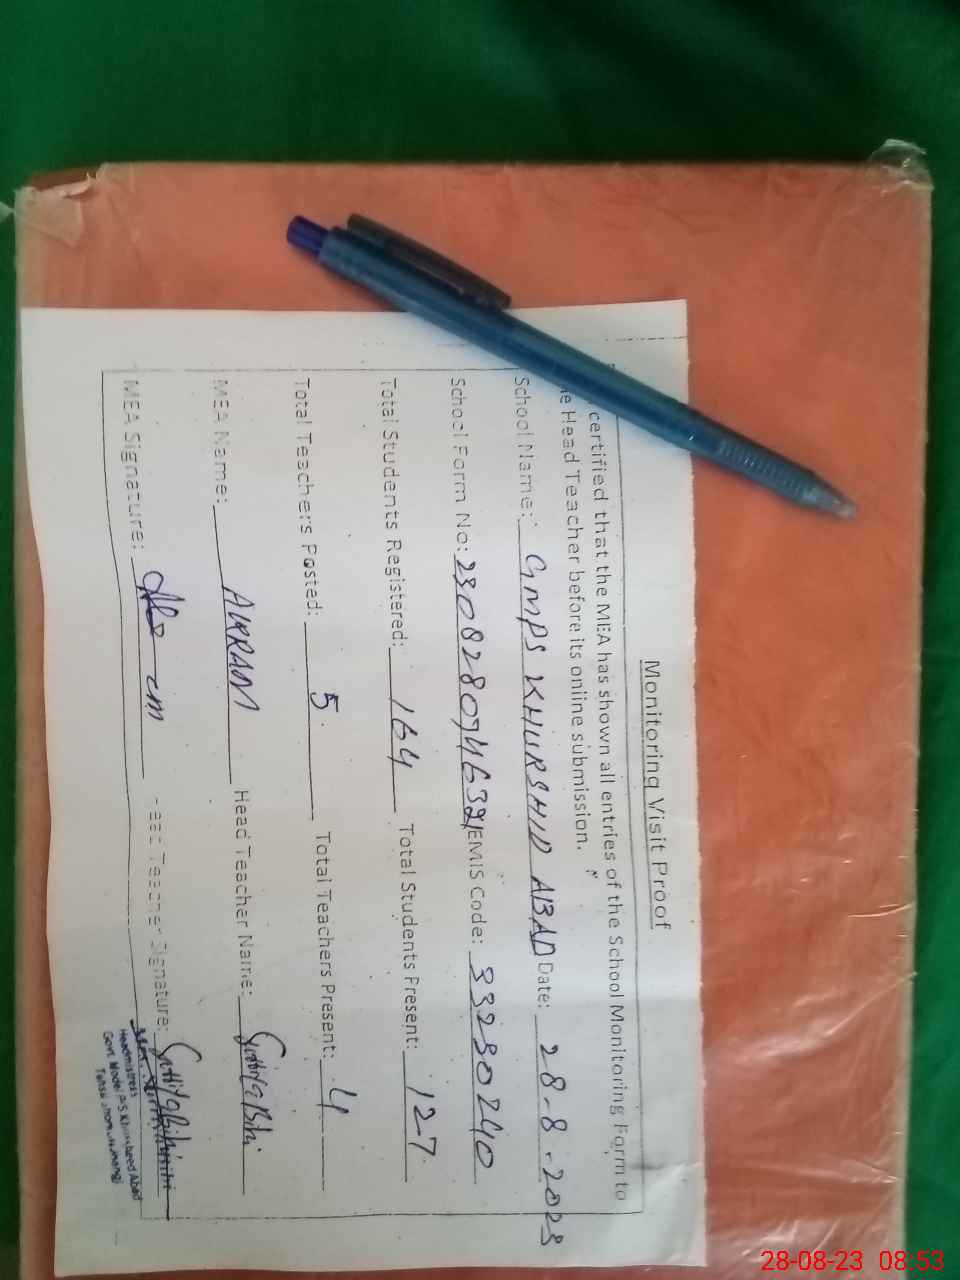 Monitoring Visit Proof
certified that the MEA has shown all entries of the School Monitoring Form to
Head Teacher before its online submission.
School Name: GMPS KHURSHID ABAD Date: 28-8-2023
School Form No: EMIS Code: 33230240
Total Students Registered: 164 Total Students Present: 127
Total Teachers Posted: 5 Total Teachers Present: 4
MEA Name: Head Teacher Name: Bibi
MEA Signature: Head Teacher Signature:
Headmistress
Govt. Model P/S Khursheed Abad
28-08-23 08:53